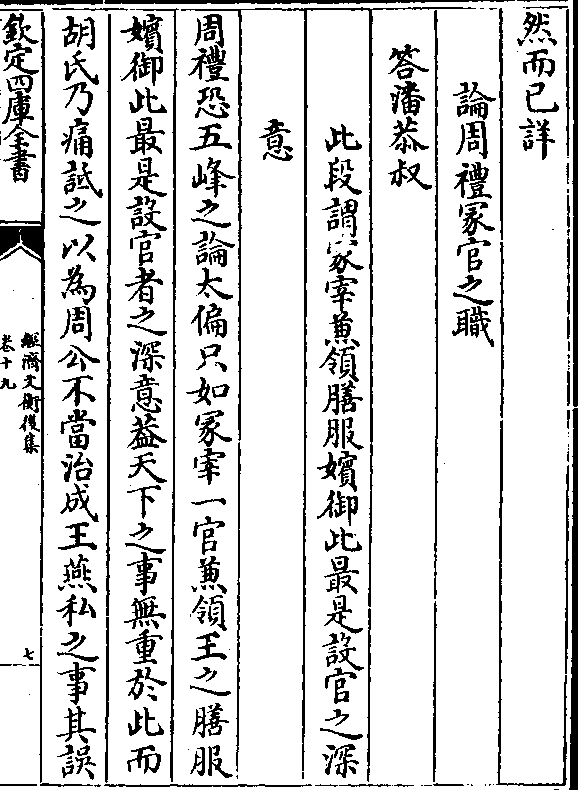 然而已詳
論周禮冢官之職
答潘恭叔
此段謂冡宰兼領膳服嬪御此最是設官之深
意
周禮恐五峰之論太偏只如冡宰一官兼領王之膳服
嬪御此最是設官者之深意葢天下之事無重於此而
胡氏乃痛詆之以為周公不當治成王燕私之事其誤
欽定四庫全書
經濟文衡後集
卷十九
七